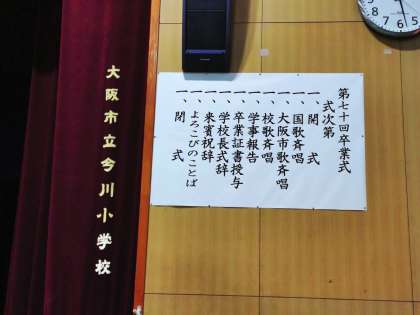 第七十回卒業式
式次第
一、開式
一、国歌斉唱
一、大阪市歌斉唱
一、校歌斉唱
一、学事報告
一、卒業証書授与
一、学校長式辞
一、来賓祝辞
一、よろこびのことば
一、閉式
大阪市立今川小学校